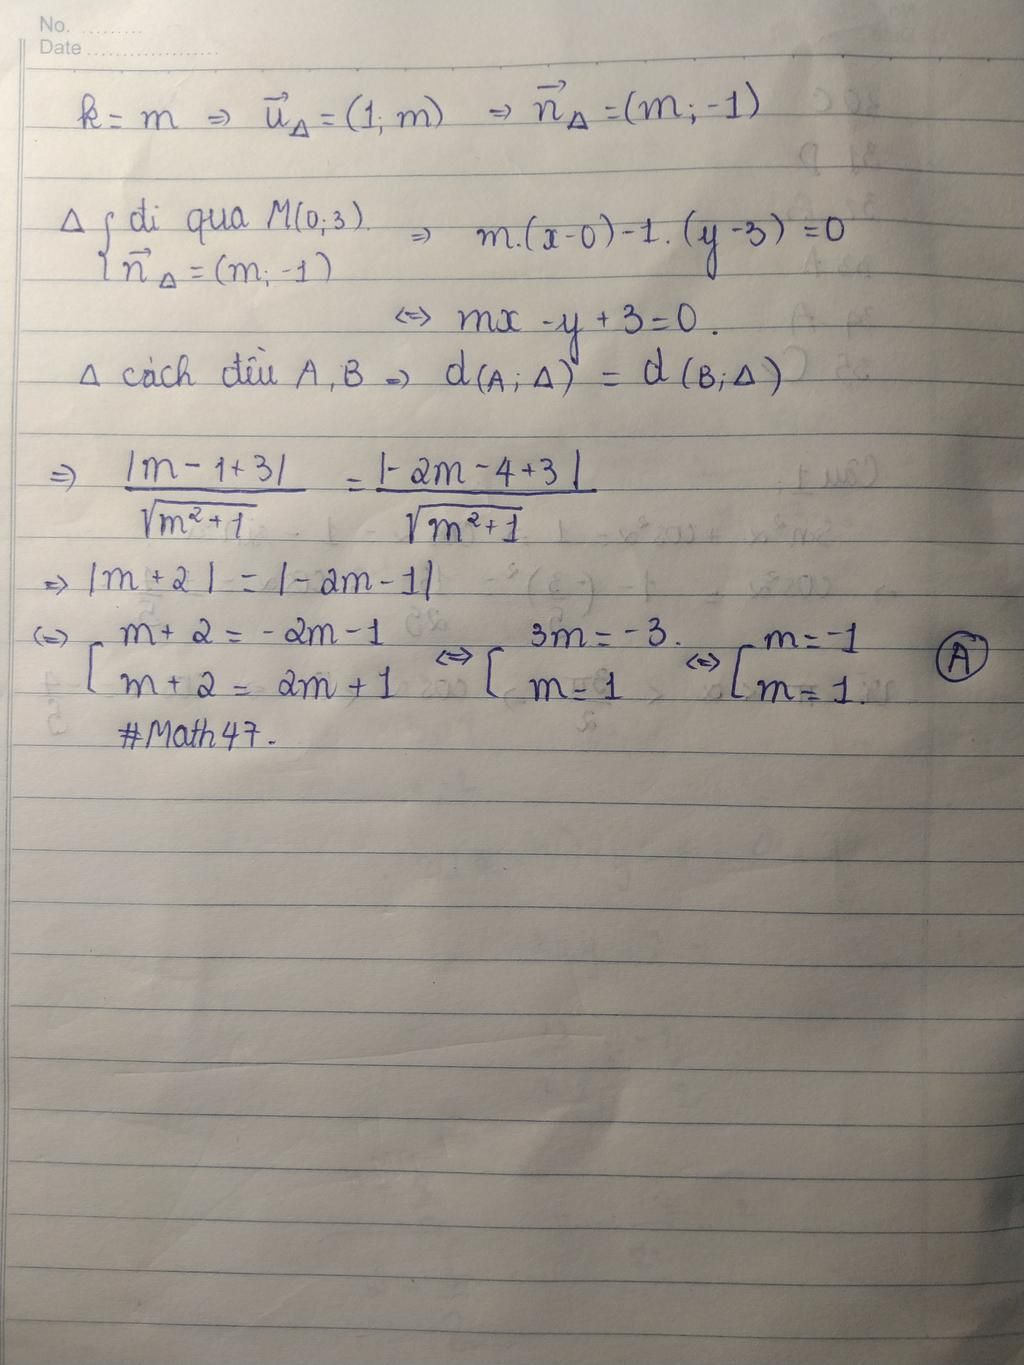 No. .........
Date ...................
k = m => u⃗Δ = (1; m) => n⃗Δ = (m; -1)
Δ { đi qua M(0;3). => m.(x-0) - 1.(y-3) = 0
n⃗Δ = (m; -1)
<=> mx - y + 3 = 0.
Δ cách đều A, B => d(A; Δ) = d(B; Δ)
=> |m - 1 + 3| / √(m² + 1) = |-2m - 4 + 3| / √(m² + 1)
=> |m + 2| = |-2m - 1|
<=> [ m + 2 = -2m - 1 <=> [ 3m = -3. <=> [ m = -1 (A)
m + 2 = 2m + 1 m = 1 m = 1.
#Math47.